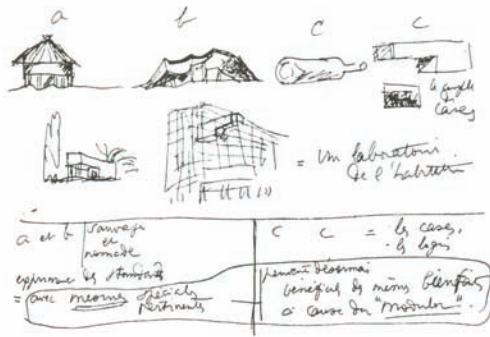 a b c c
le
cases
= un laboratoire
de l'habitation
a et b
sauvage
et
nomade
expression des standards
= avec mesures spéciales
pertinentes
c c = les cases,
les logis
peuvent désormais
bénéficier des mêmes bienfaits
à cause du "modulor".